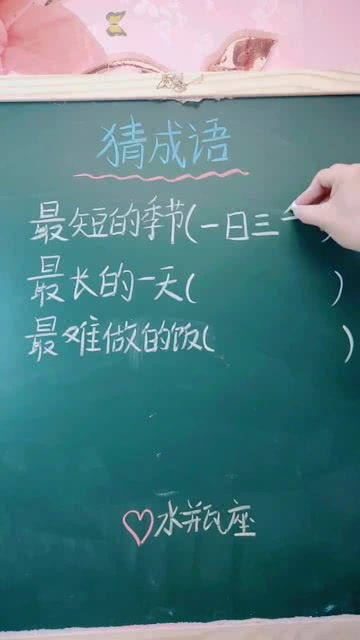 猜成语
最短的季节(一日三 )
最长的一天( )
最难做的饭( )
水并瓦座